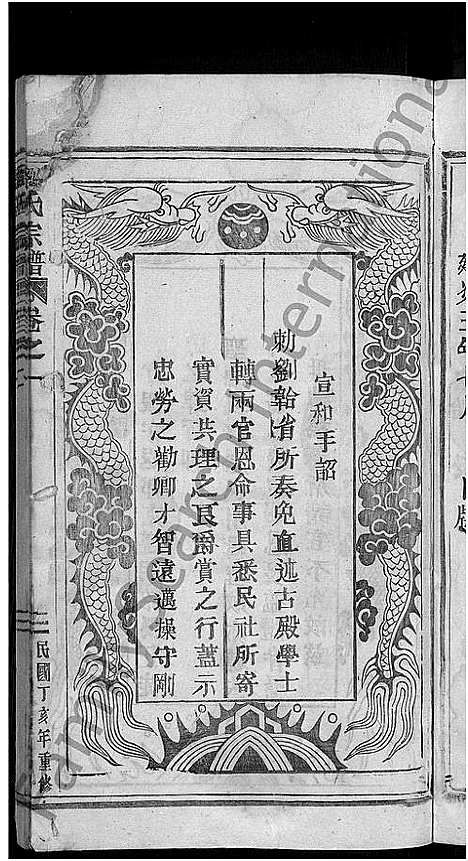 宣和手詔
勅劉韐省所奏免直述古殿學士
轉兩官恩命事具悉民社所寄
實資共理之良爵賞之行蓋示
忠勞之勸卿才智遠邁操守剛
氏宗譜
卷之一
民國丁亥年重修